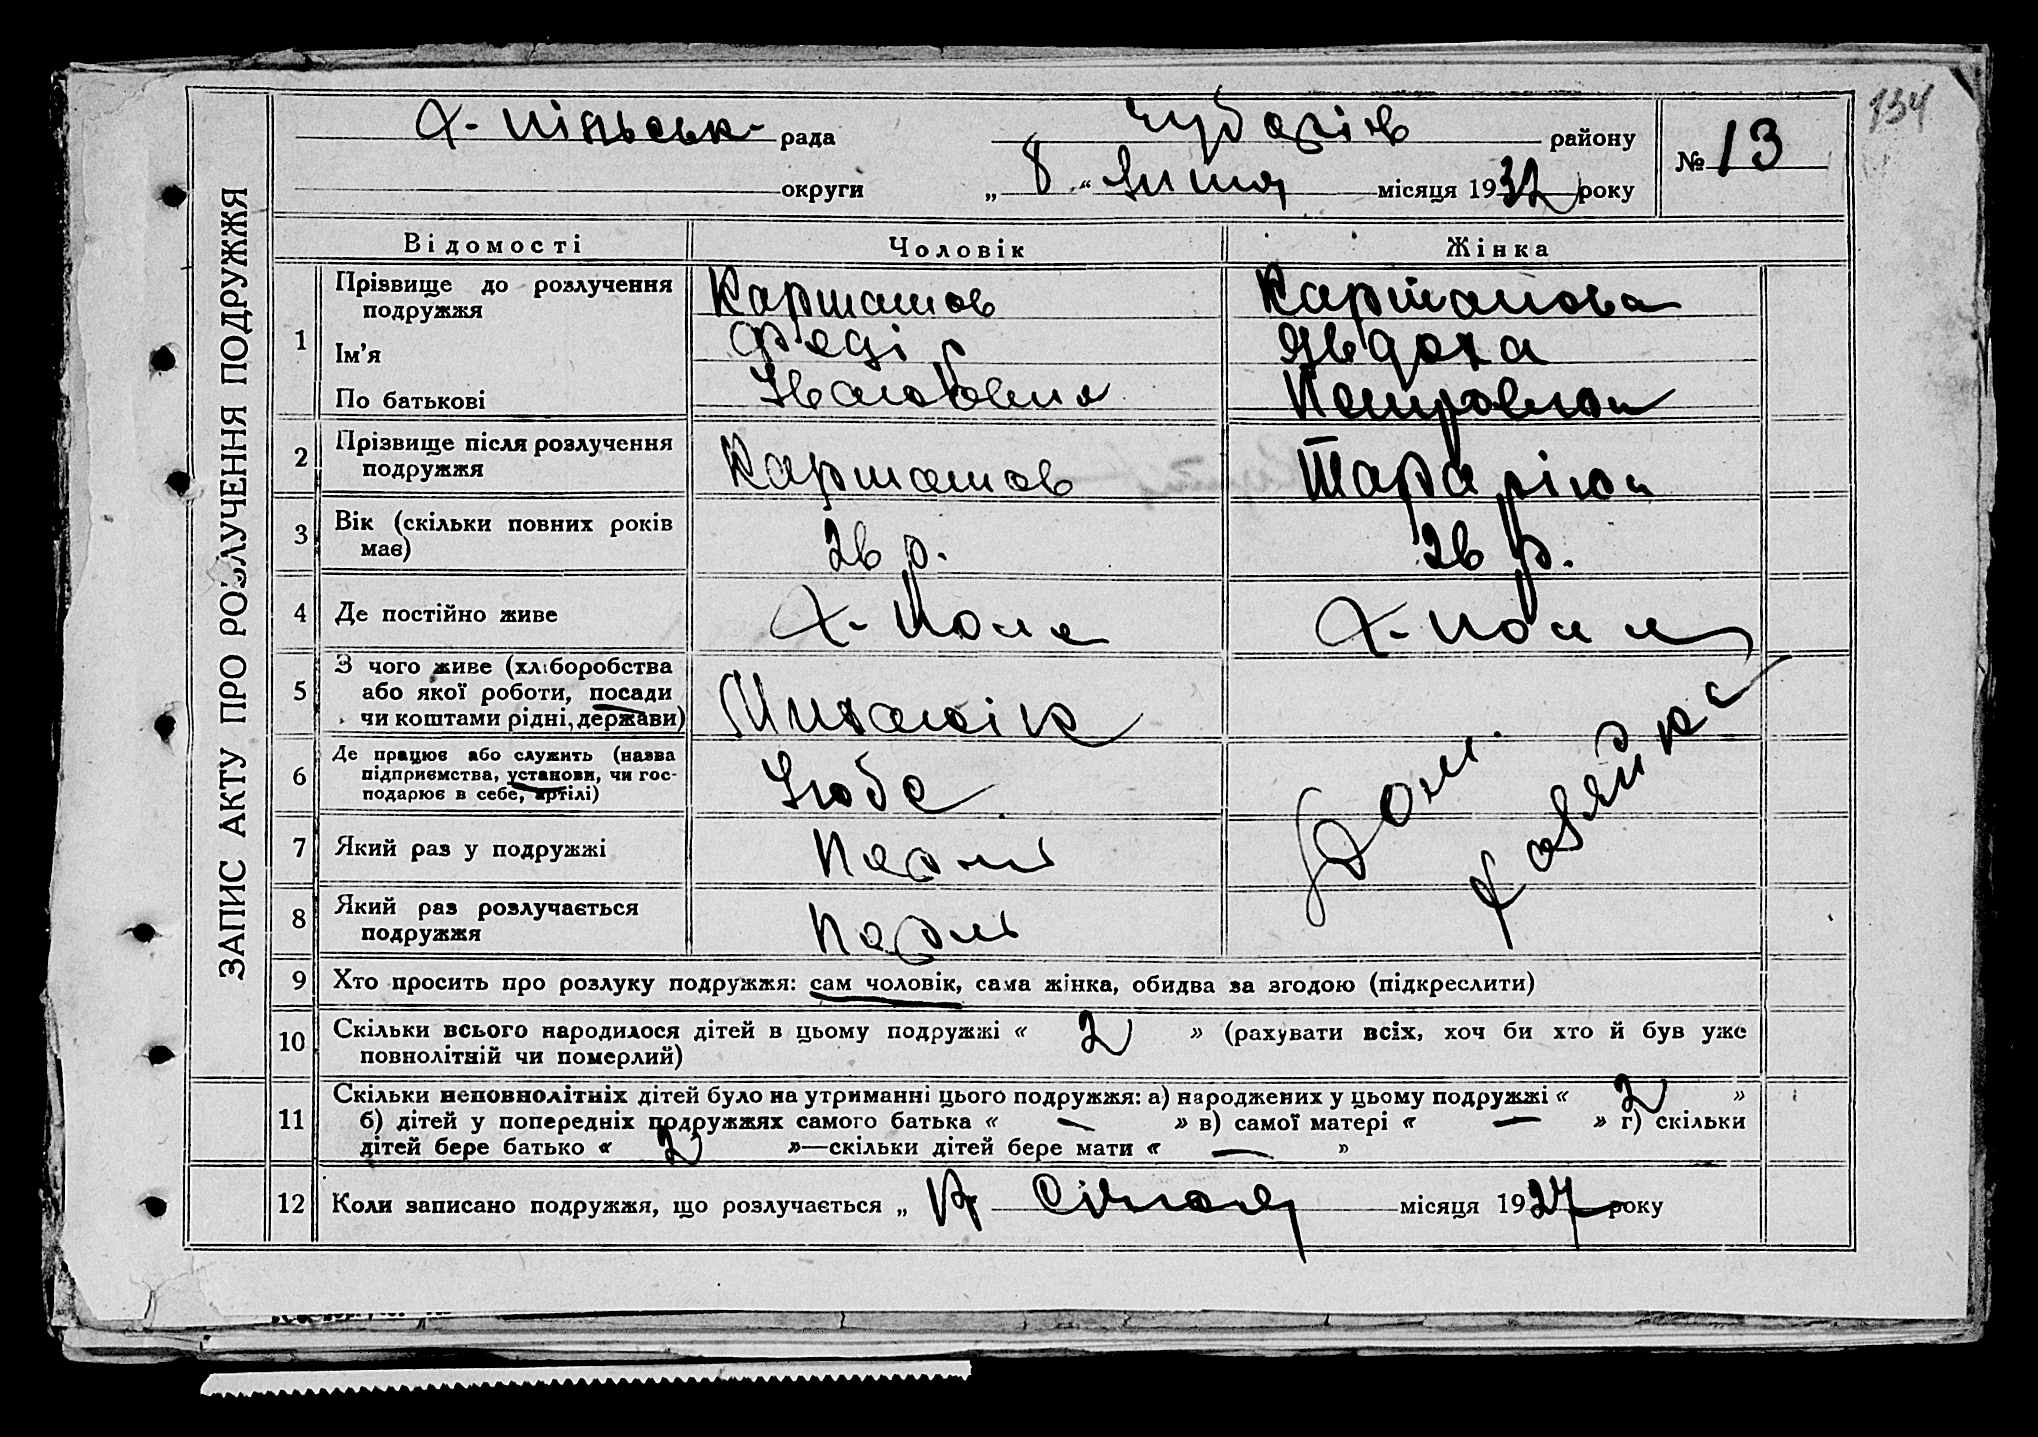 134
рада
Чубарів району
№ 13
округи „ 8 “ Липня місяця 1932 року
ЗАПИС АКТУ ПРО РОЗЛУЧЕННЯ ПОДРУЖЖЯ
Відомості Чоловік Жінка
1 Прізвище до розлучення подружжя Карташов Карташова
Ім’я Федір Явдоха
По батькові Іванович Петровна
2 Прізвище після розлучення подружжя Карташов
3 Вік (скільки повних років має) 26 р. 26 р.
4 Де постійно живе Х- Поле Х- Поле
5 З чого живе (хліборобства або якої роботи, посади чи коштами рідні, держави) Механік
6 Де працює або служить (назва підприємства, установи, чи господарює в себе, артілі)
Дом. хозяйка
7 Який раз у подружжі Перш
8 Який раз розлучається подружжя Перш
9 Хто просить про розлуку подружжя: сам чоловік, сама жінка, обидва за згодою (підкреслити)
10 Скільки всього народилося дітей в цьому подружжі « 2 » (рахувати всіх, хоч би хто й був уже
повнолітній чи померлий)
11 Скільки неповнолітніх дітей було на утриманні цього подружжя: а) народжених у цьому подружжі « 2 »
б) дітей у попередніх подружжях самого батька « — » в) самої матері « — » г) скільки
дітей бере батько « 2 »—скільки дітей бере мати « — »
12 Коли записано подружжя, що розлучається „ Січня місяця 1927 року